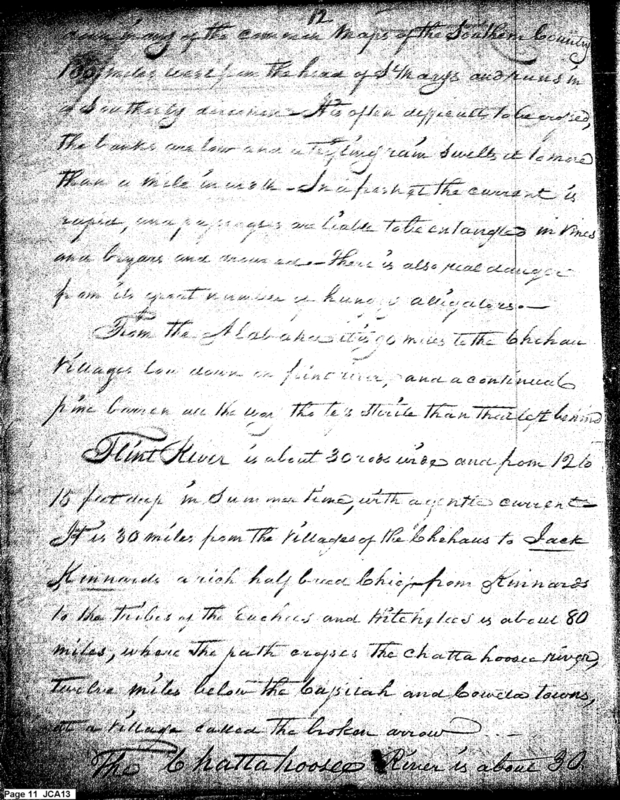 12
down in any of the common Maps of the Southern Country
miles west from the head of St Marys and runs in
a Southerly direction - It is often difficult to be crossed,
the banks are low and a trifling rain swells it to more
than a mile in width - In a freshet the current is
rapid, and passengers are liable to be entangled in vines
and bryars and drowned - There is also real danger
from its great number of hungry alligators. -
From the Alabaha it is 90 miles to the Chehau
Villages low down on flint river, and a continual
pine barren all the way tho' less sterile than that left behind
Flint River is about 30 rods wide and from 12 to
15 feet deep in Summer time, with a gentle current -
It is 30 miles from the Villages of the Chehaus to Jack
Kinnards a rich half breed Chief - from Kinnards
to the tribes of the Euchees and Hitchetees is about 80
miles, where the path crosses the Chattahoosee river,
twelve miles below the Cussitah and Coweta towns,
at a Village called the broken arrow
The Chattahoosee River is about 30
Page 11 JCA13